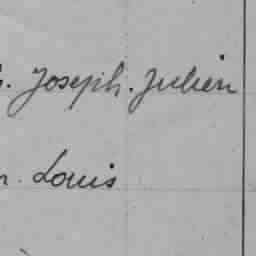 . Joseph. Julien
. Louis